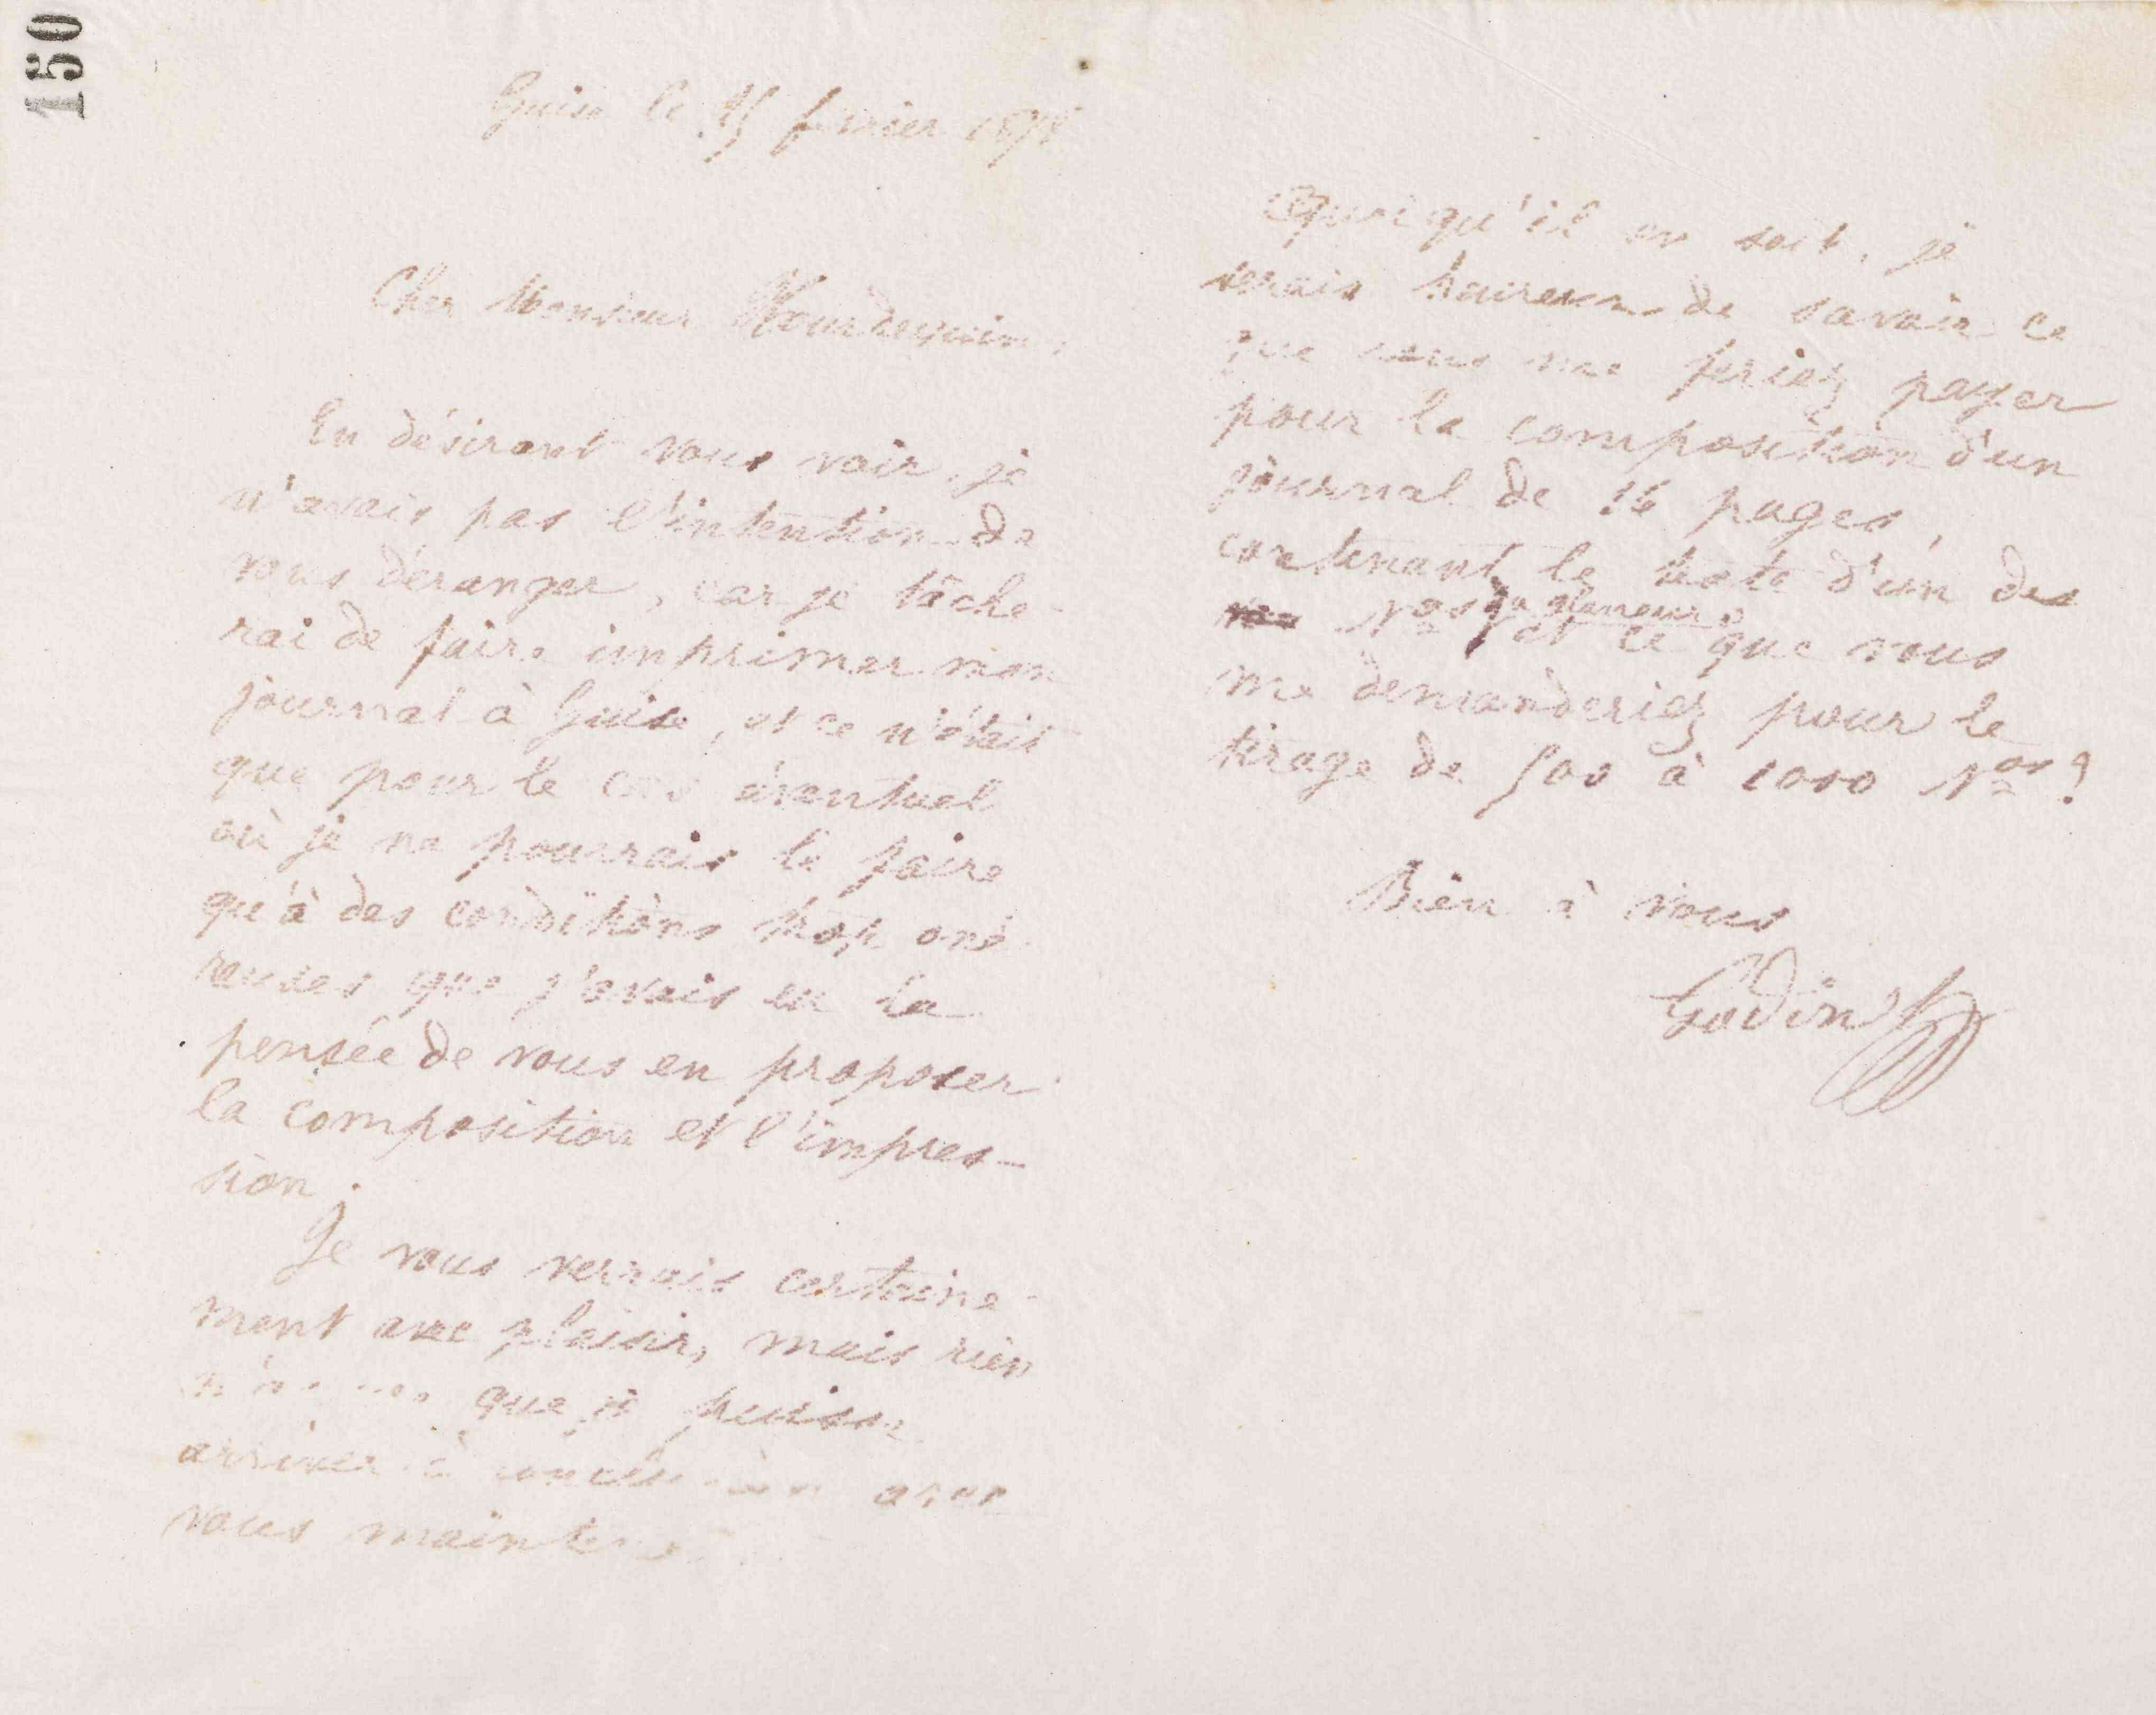 150
Guise le février 1878
Cher Monsieur Hourdequin,
En désirant vous voir, je
n'avais pas l'intention de
vous déranger, car je tâche-
rai de faire imprimer mon
journal à Guise, et ce n'était
que pour le cas éventuel
où je ne pourrais le faire
qu'à des conditions trop oné-
reuses que j'avais eu la
pensée de vous en proposer
la composition et l'impres-
sion.
Je vous verrais certaine-
ment avec plaisir, mais rien
que je puisse
arriver à avec
vous
Quoi qu'il en soit, je
serais heureux de savoir ce
que vous me feriez payer
pour la composition d'un
journal de 16 pages,
contenant le texte d'un des
Nos du glaneur, et ce que vous
me demanderiez pour le
tirage de 500 à 1000 Nos ?
Bien à vous
Godin